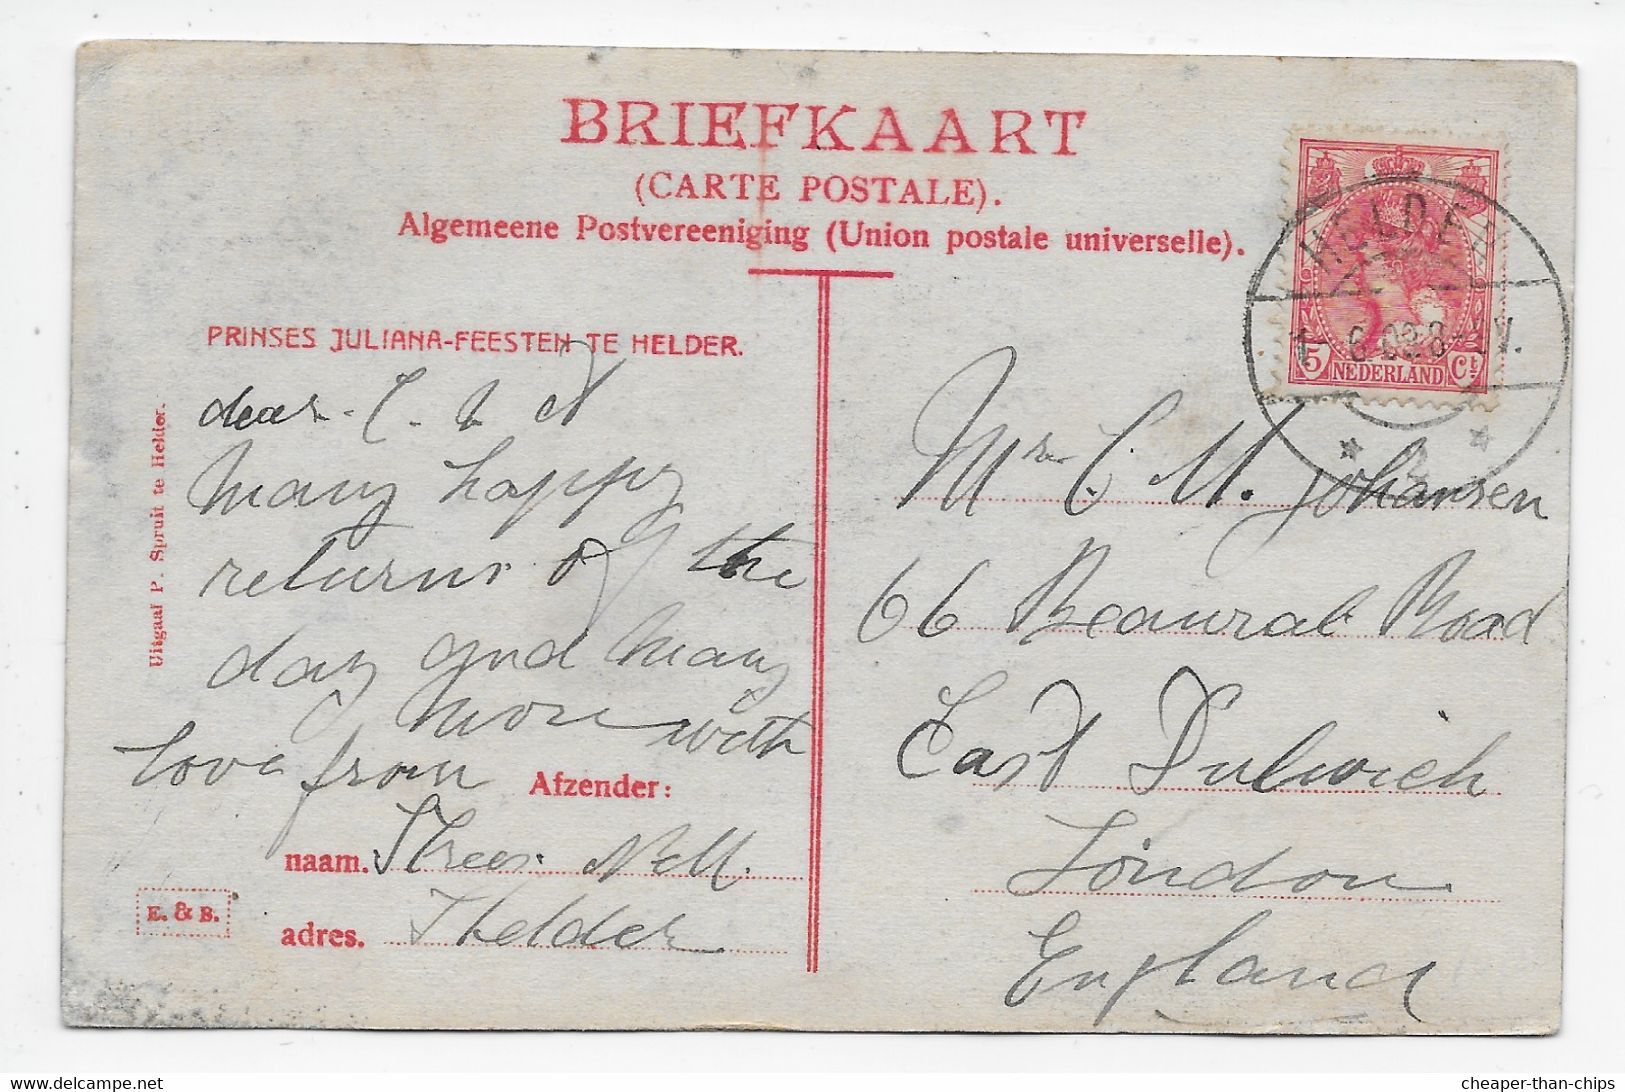 BRIEFKAART
(CARTE POSTALE).
Algemeene Postvereeniging (Union postale universelle).
PRINSES JULIANA-FEESTEN TE HELDER.
Uitgaaf P. Spruit te Helder.
dear
Many happy
returns of the
day and many
more with
love from
Afzender:
naam.
adres. Helder
E. & B.
Mr C. M. Johansen
66 Beauval Road
East Dulwich
London
England
HELDER
5 Ct
NEDERLAND
cheaper-than-chips